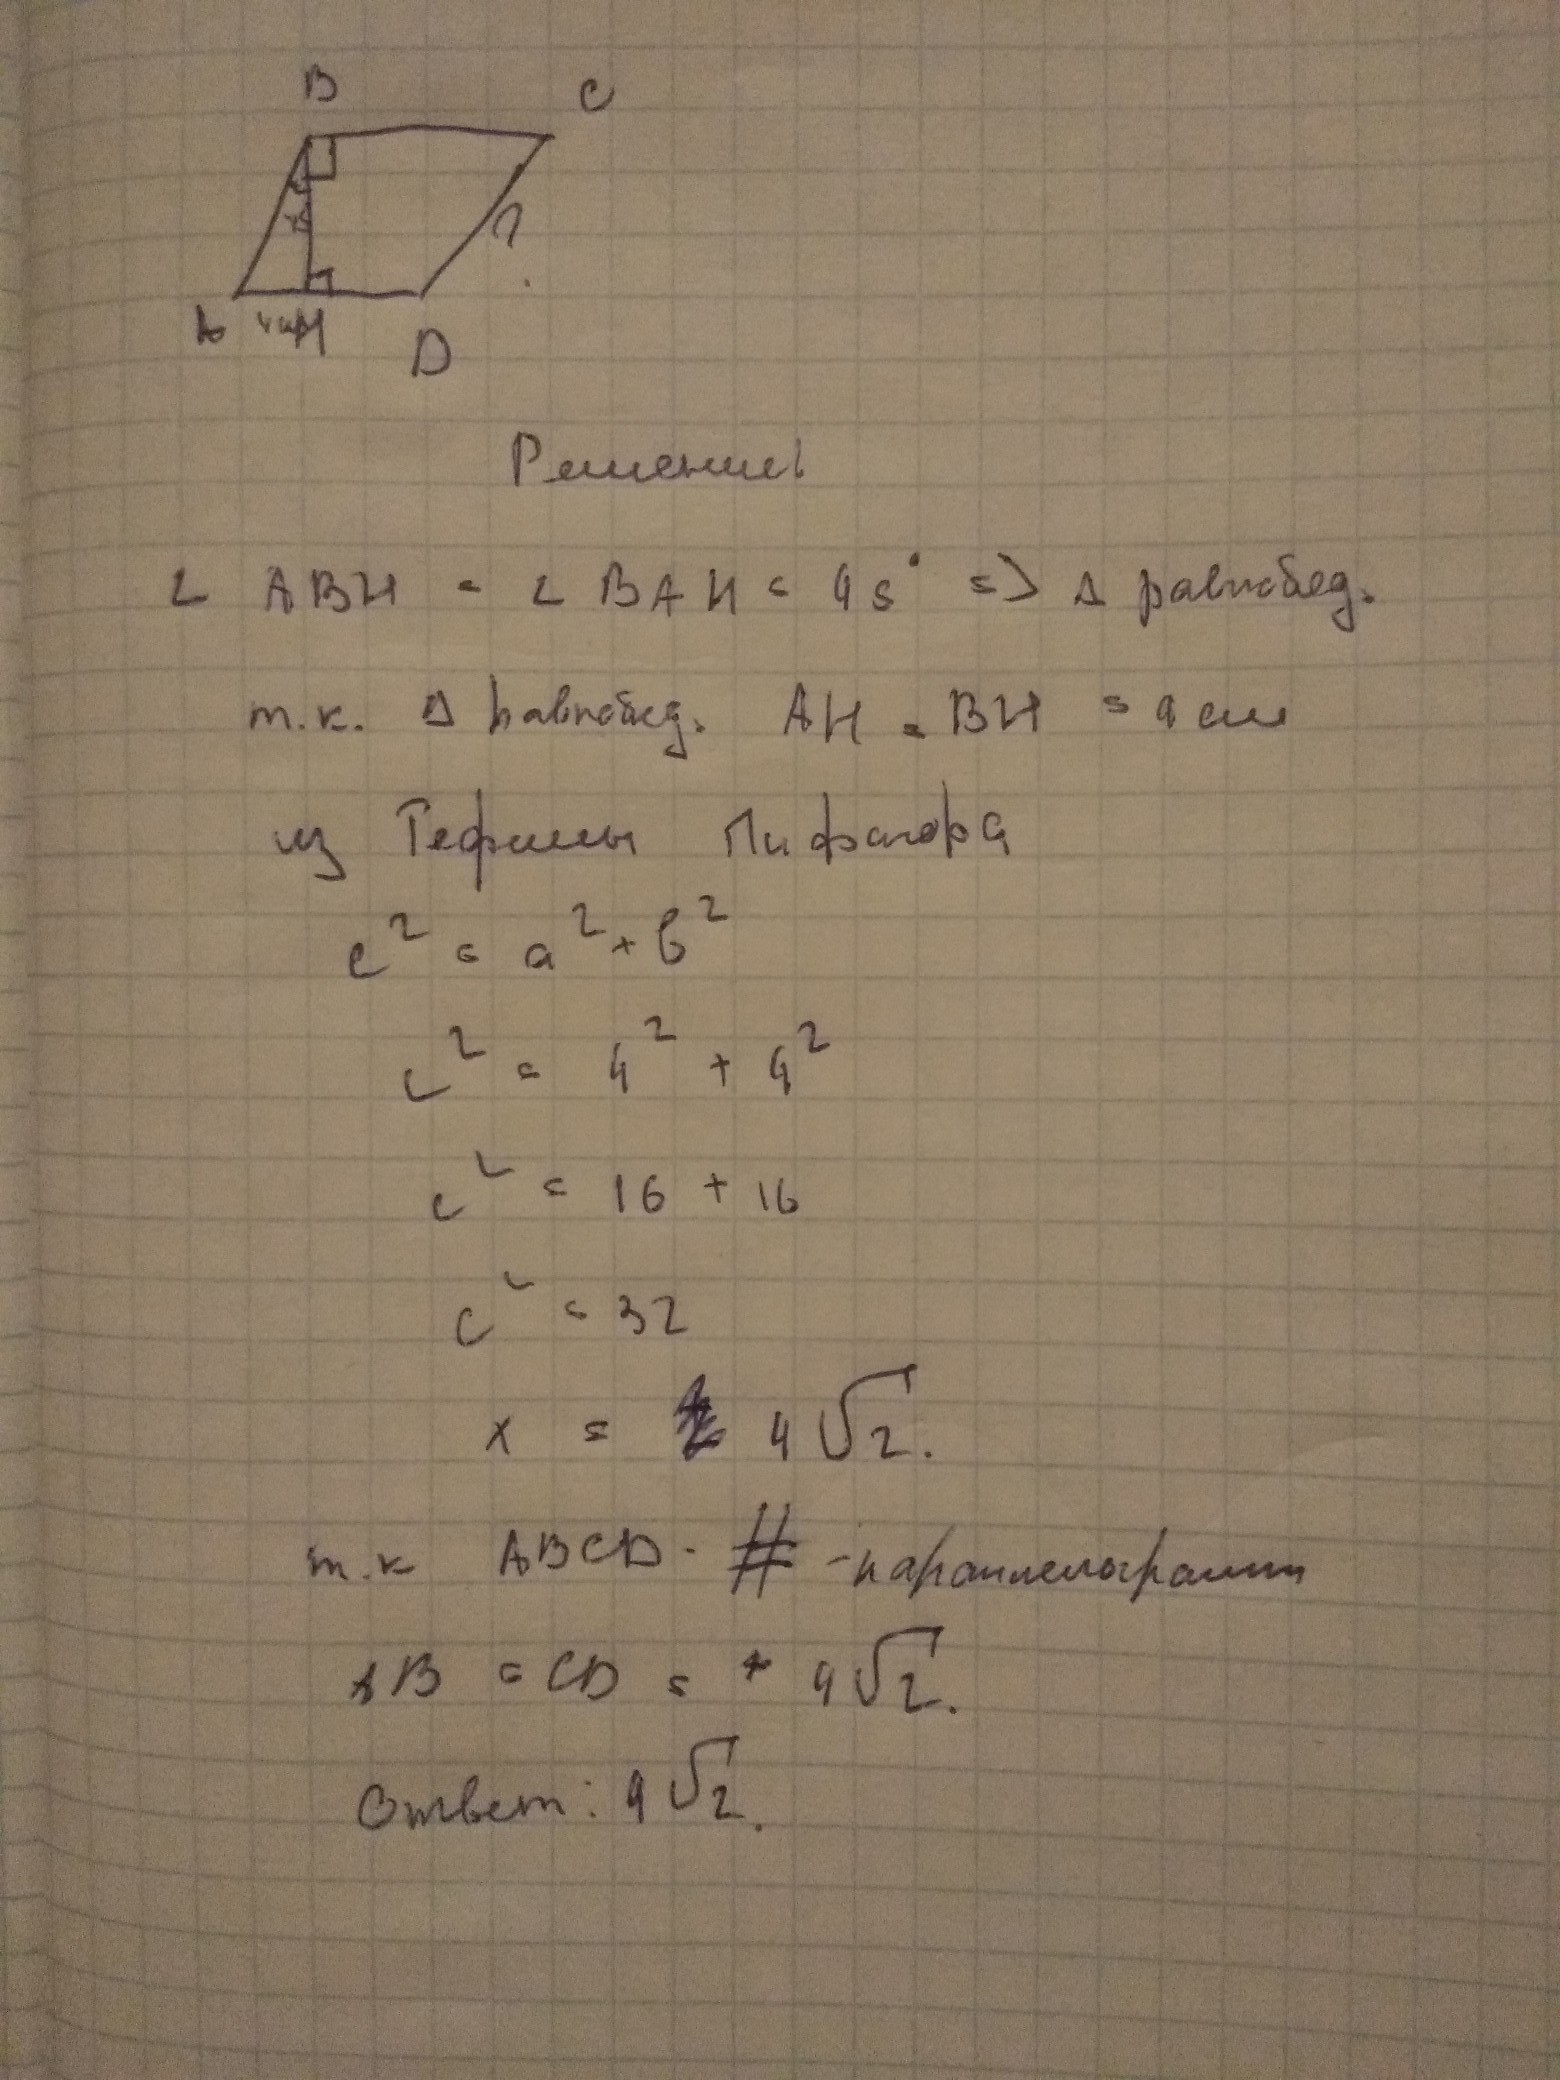 B C
45
A 4см H D
Решение:
∠ ABH = ∠ BAH = 45° => Δ равнобед.
т.к. Δ равнобед. AH = BH = 4 см
из Теоремы Пифагора
c² = a² + b²
c² = 4² + 4²
c² = 16 + 16
c² = 32
x = 4√2.
т.к ABCD - # - параллелограмм
AB = CD = 4√2.
Ответ: 4√2.